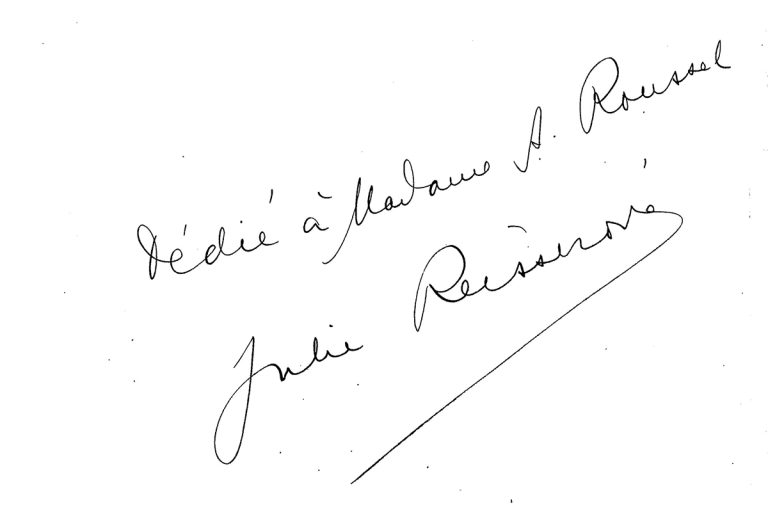 Dédié à Madame A. Roussel
Julie Reisserová